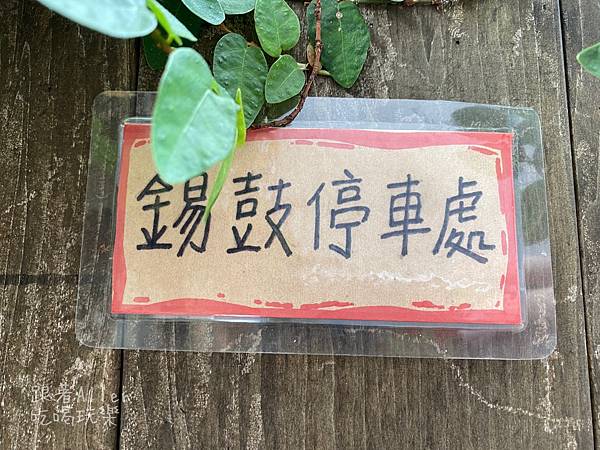 錫鼓停車處
跟着Allen
吃喝玩樂